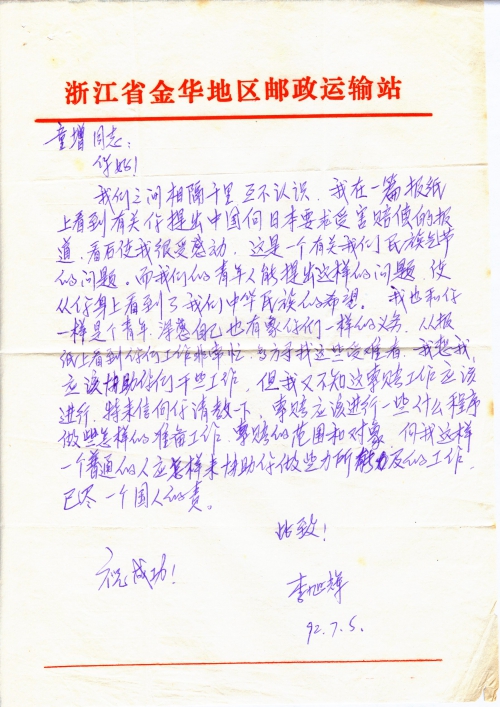 浙江省金华地区邮政运输站
童增同志：
你好！
我们之间相隔千里互不认识，我在一篇报纸
上看到有关你提出中国向日本要求受害赔偿的报
道，看后使我很受感动，这是一个有关我们民族气节
的问题。而我们的青年人能提出这样的问题，使
从你身上看到了我们中华民族的希望。我也和你
一样是个青年，深感自己也有象你们一样的义务，从报
纸上看到你们工作非常忙，寻找这些受难者，我想我
应该协助你们干些工作，但我又不知这索赔工作应该
进行，特来信向你请教下，索赔应该进行一些什么程序
做些怎样的准备工作，索赔的范围和对象，向我这样
一个普通的人应怎样来协助你做些力所能及的工作，
已尽一个国人的责。
此致！
祝成功！
李旭辉
92.7.5.